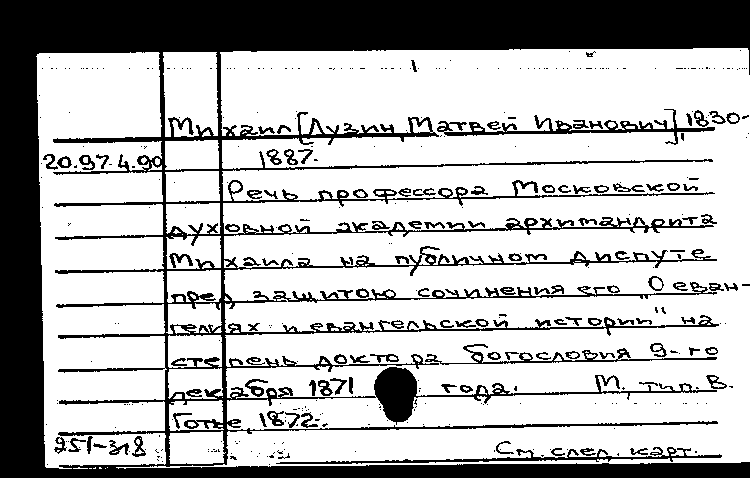 Михаил [Лузин, Матвей Иванович], 1830-
20.97.4.90 1887.
Речь профессора Московской
духовной академии архимандрита
Михаила на публичном диспуте
пред защитою сочинения его "О еван-
гелиях и евангельской истории" на
степень доктора богословия 9-го
декабря 1871 года. М., тип. В.
Готье, 1872.
251-318 См. след. карт.